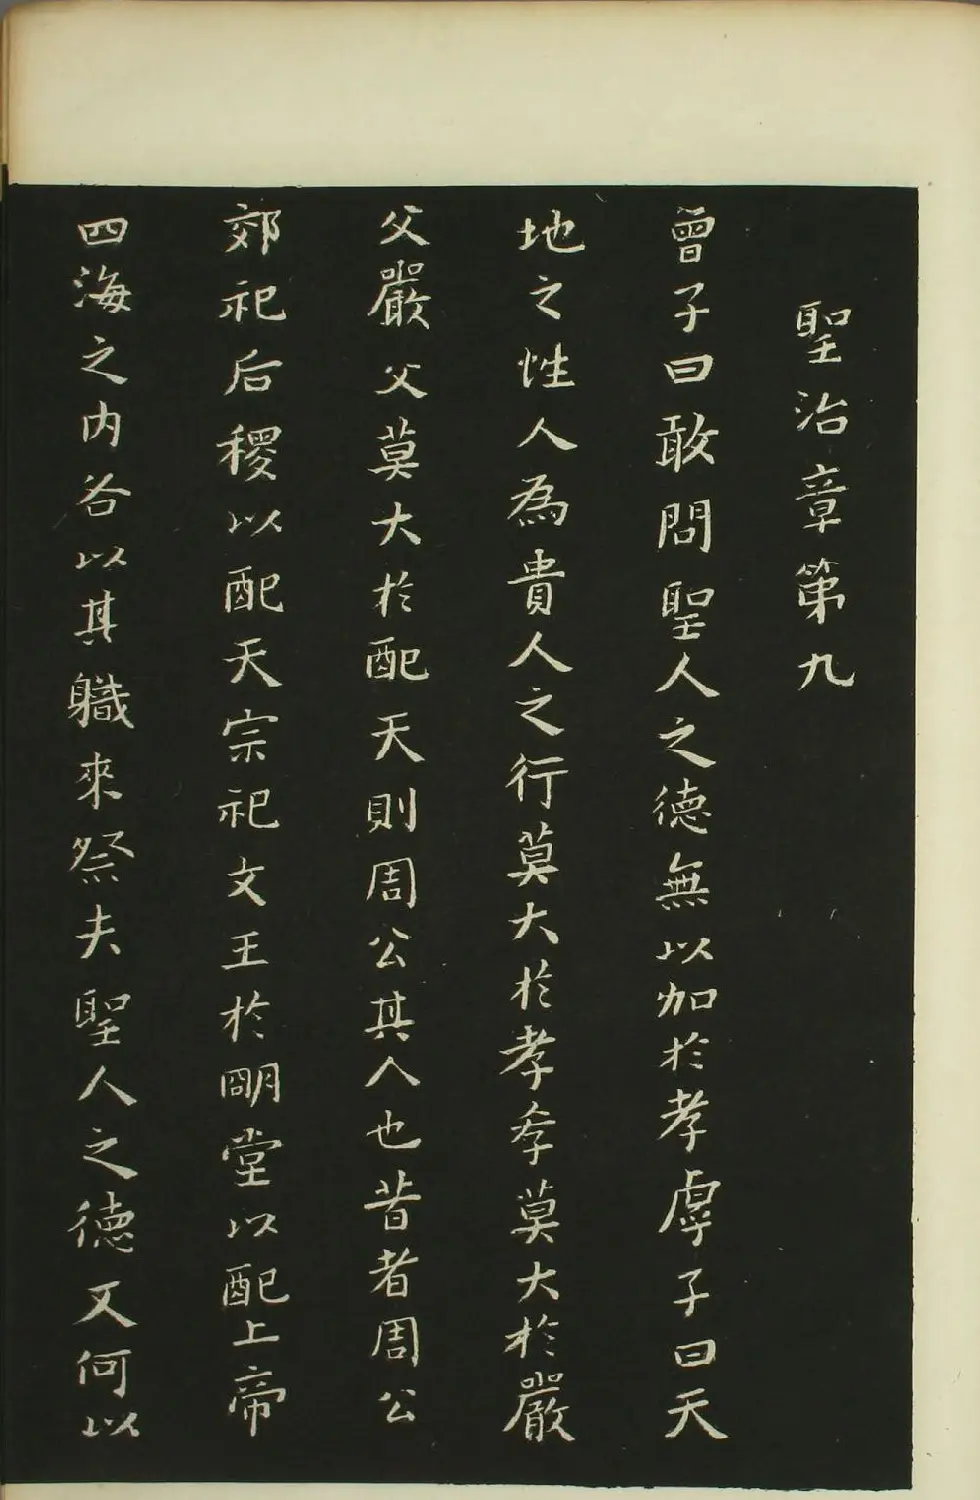 聖治章第九
曾子曰敢問聖人之德無以加於孝虖子曰天
地之性人為貴人之行莫大於孝孝莫大於嚴
父嚴父莫大於配天則周公其人也昔者周公
郊祀后稷以配天宗祀文王於明堂以配上帝
四海之内各以其職來祭夫聖人之德又何以